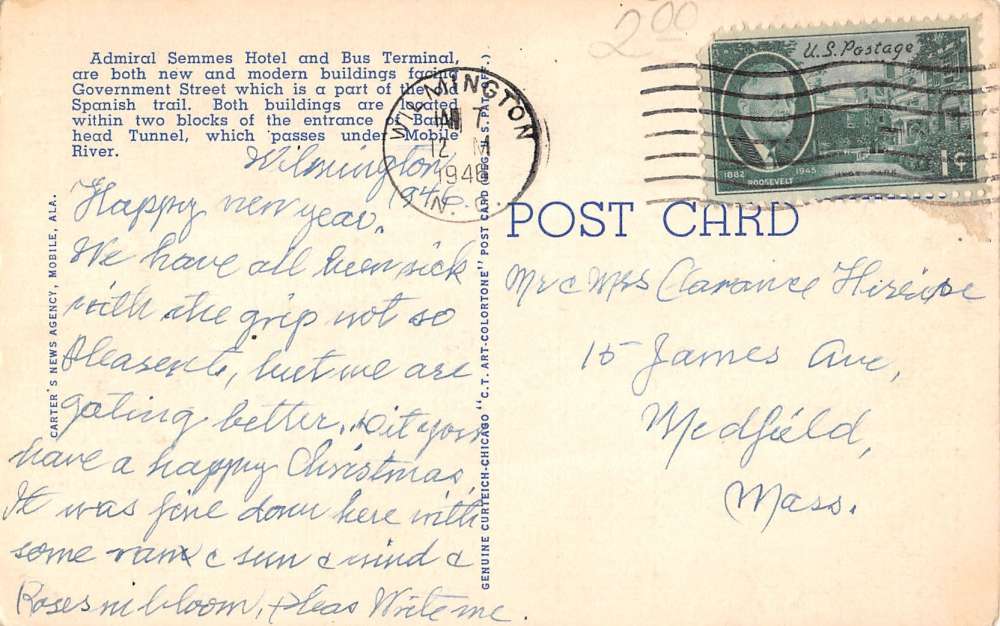 2.00
Admiral Semmes Hotel and Bus Terminal,
are both new and modern buildings facing
Government Street which is a part of the old
Spanish trail. Both buildings are located
within two blocks of the entrance of Bank-
head Tunnel, which passes under Mobile
River.
WILMINGTON
JAN 7
12 M
1946
N.C.
U.S. Postage
1882 ROOSEVELT 1945
HYDE PARK
1¢
CARTER'S NEWS AGENCY, MOBILE, ALA.
GENUINE CURTEICH-CHICAGO "C.T. ART-COLORTONE" POST CARD (REG. U.S. PAT. OFF.)
POST CARD
Wilmington
1946.
Happy new year,
We have all been sick
with the grip not so
pleasent, but we are
gating better. Dit you
have a happy Christmas,
It was fine down here with
some rain & sun & wind &
Roses in bloom, pleas Write me.
Mr & Mrs Clarance
15 James Ave,
Medfield,
Mass.